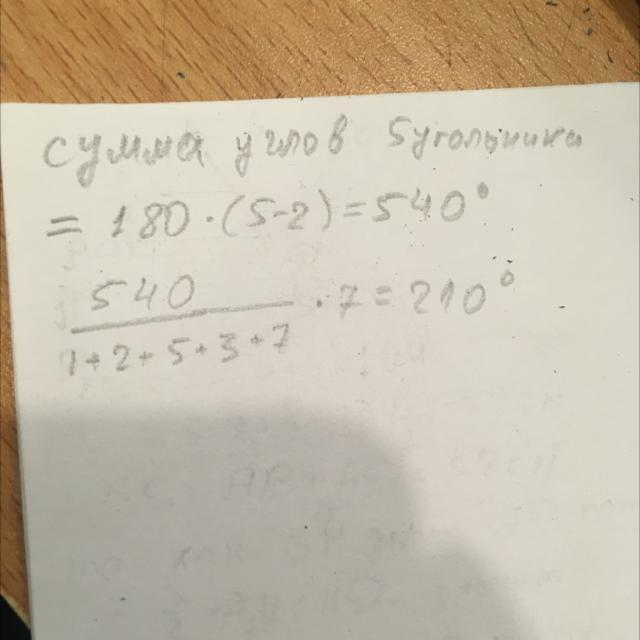 сумма углов 5угольника
= 180·(5-2)=540°
540
———— · 7 = 210°
1+2+5+3+7